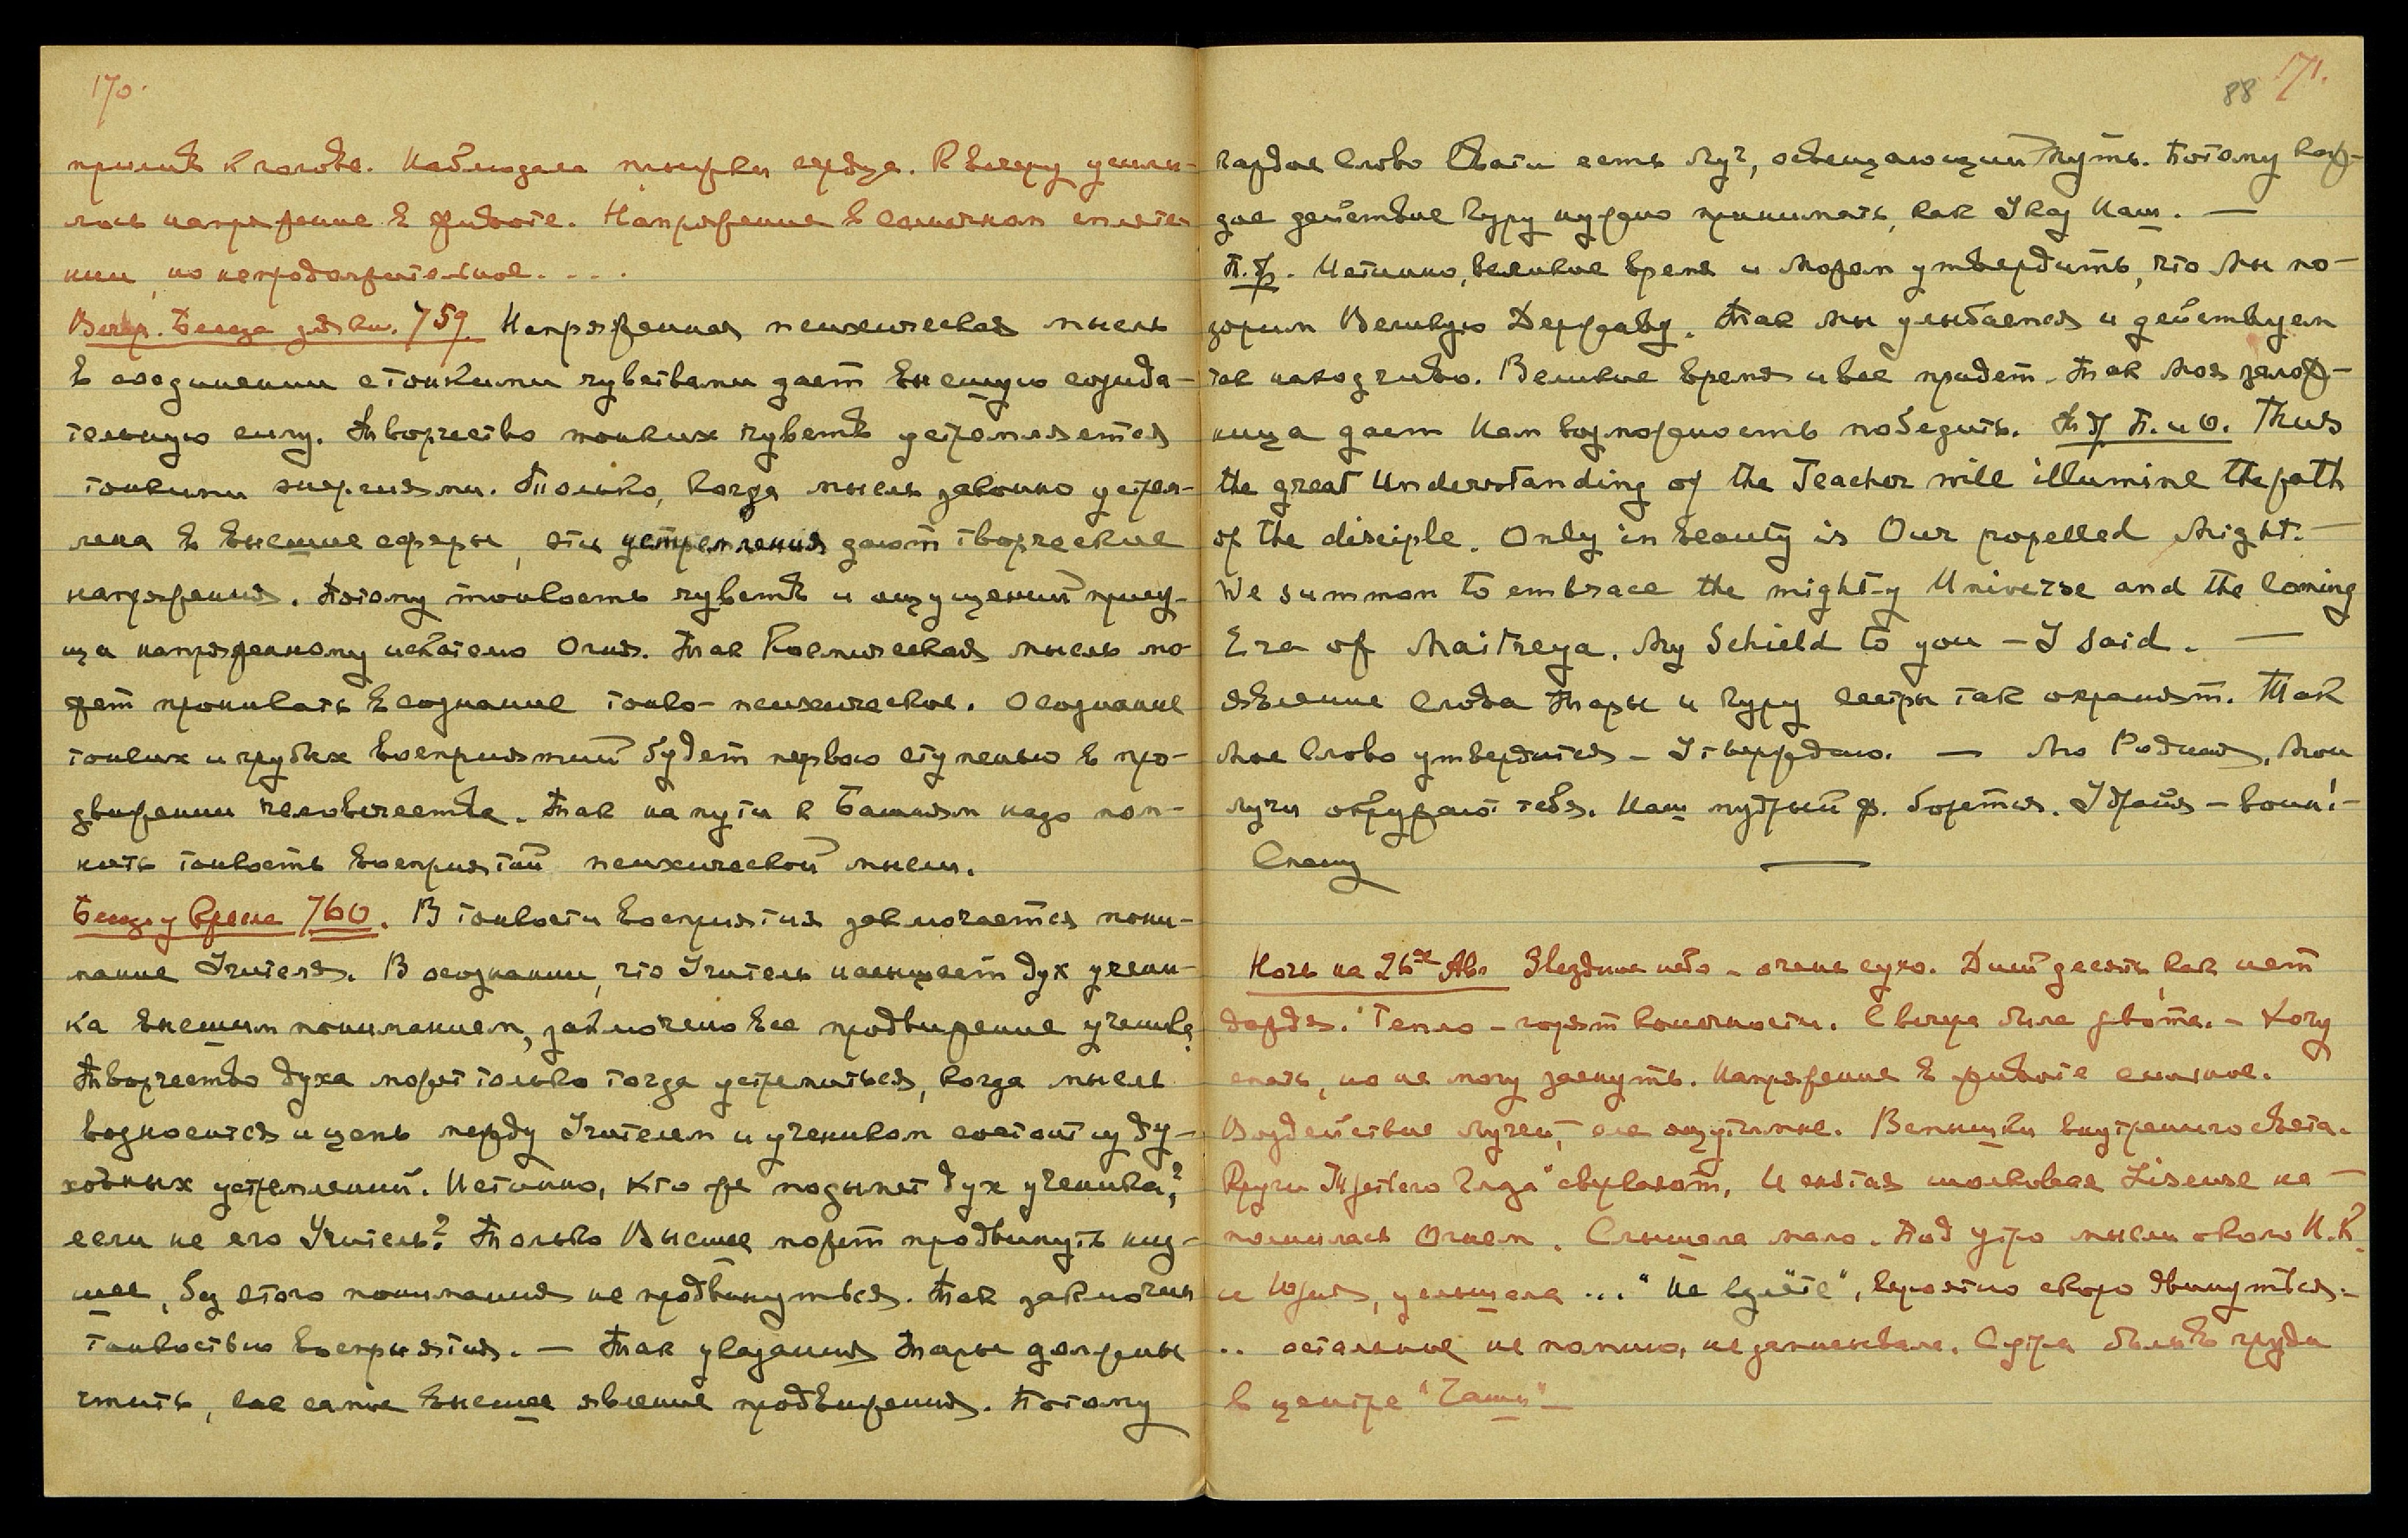 170.
прилив к голове. Наблюдала прыжки сердца. К вечеру усили-
лось напряжение в животе. Напряжение в солнечном сплете-
нии, но непродолжительное. . . .
Вечер. Беседа для кн. 759. Напряженная психическая мысль
в соединении с тонкими чувствами дает высшую созида-
тельную силу. Творчество тонких чувств устремляется
тонкими энергиями. Только, когда мысль звонко устрем-
лена в высшие сферы, эти устремления дают творческие
напряжения. Потому тонкость чувств и ощущений прису-
ща напряженному искателю Огня. Так Космическая мысль мо-
жет проникать в сознание тонко-психическое. Осознание
тонких и грубых восприятий будет первою ступенью в про-
движении человечества. Так на пути к Башням надо пом-
нить тонкость восприятий психической мысли.
760. В тонкости восприятия заключается пони-
мание Учителя. В осознании, что Учитель насыщает дух учени-
ка высшим пониманием, заключено все продвижение ученика.
Творчество духа может только тогда устремиться, когда мысль
возносится и цепь между Учителем и учеником состоит из ду-
ховных устремлений. Истинно, кто же подымет дух ученика,?
если не его Учитель? Только Высшее может продвинуть низ-
шее, без этого понимания не продвинуться. Так заключим
тонкостью восприятия. — Так указания Тары должны
чтить, как самое высшее явление продвижения. Потому
88 171.
каждое Слово Свати есть луч, освещающий путь. Потому каж-
дое действие Гуру нужно принимать, как Указ Наш. —
П.Ф. Истинно, великое время и Можем утвердить, что Мы по-
зорим Великую Державу. Так Мы улыбаемся и действуем
так находчиво. Великое время и все придет. Так Моя залож-
ница дает Нам возможность победить. Thus
the great Understanding of the Teacher will illumine the path
of the disciple. Only in beauty is Our propelled Might. —
We summon to embrace the might-y Universe and the Coming
Era of Maitreya. My Schield to you — I said. —
явление Слова Тары и Гуру сестры так охранят. Так
Мое Слово утвердится — Утверждаю. — Мо Родная, Мои
лучи окружают тебя. Наш мудрый ф. борется. Удрая — воин! —
Спешу —
Ночь на 26ое Авг. Звездное небо — очень сухо. Дней десять, как нет
дождя. Тепло — горят конечности. С вечера была рвота. — Хочу
спать, но не могу заснуть. Напряжение в животе сильное.
Воздействие лучей, еле ощутимое. Вспышки внутреннего света.
Кружи "Третьего Глаза" сверкают. И снятая шелковая Liseuse на-
полнилась Огнем. Слышала мало. Под утро мысли около Н.К.
и Юрия, услышала ... "Не ", вероятно скоро двинутся. —
.. остальное не помню, не записывала. С утра боль в груди
в центре "Чаши" —